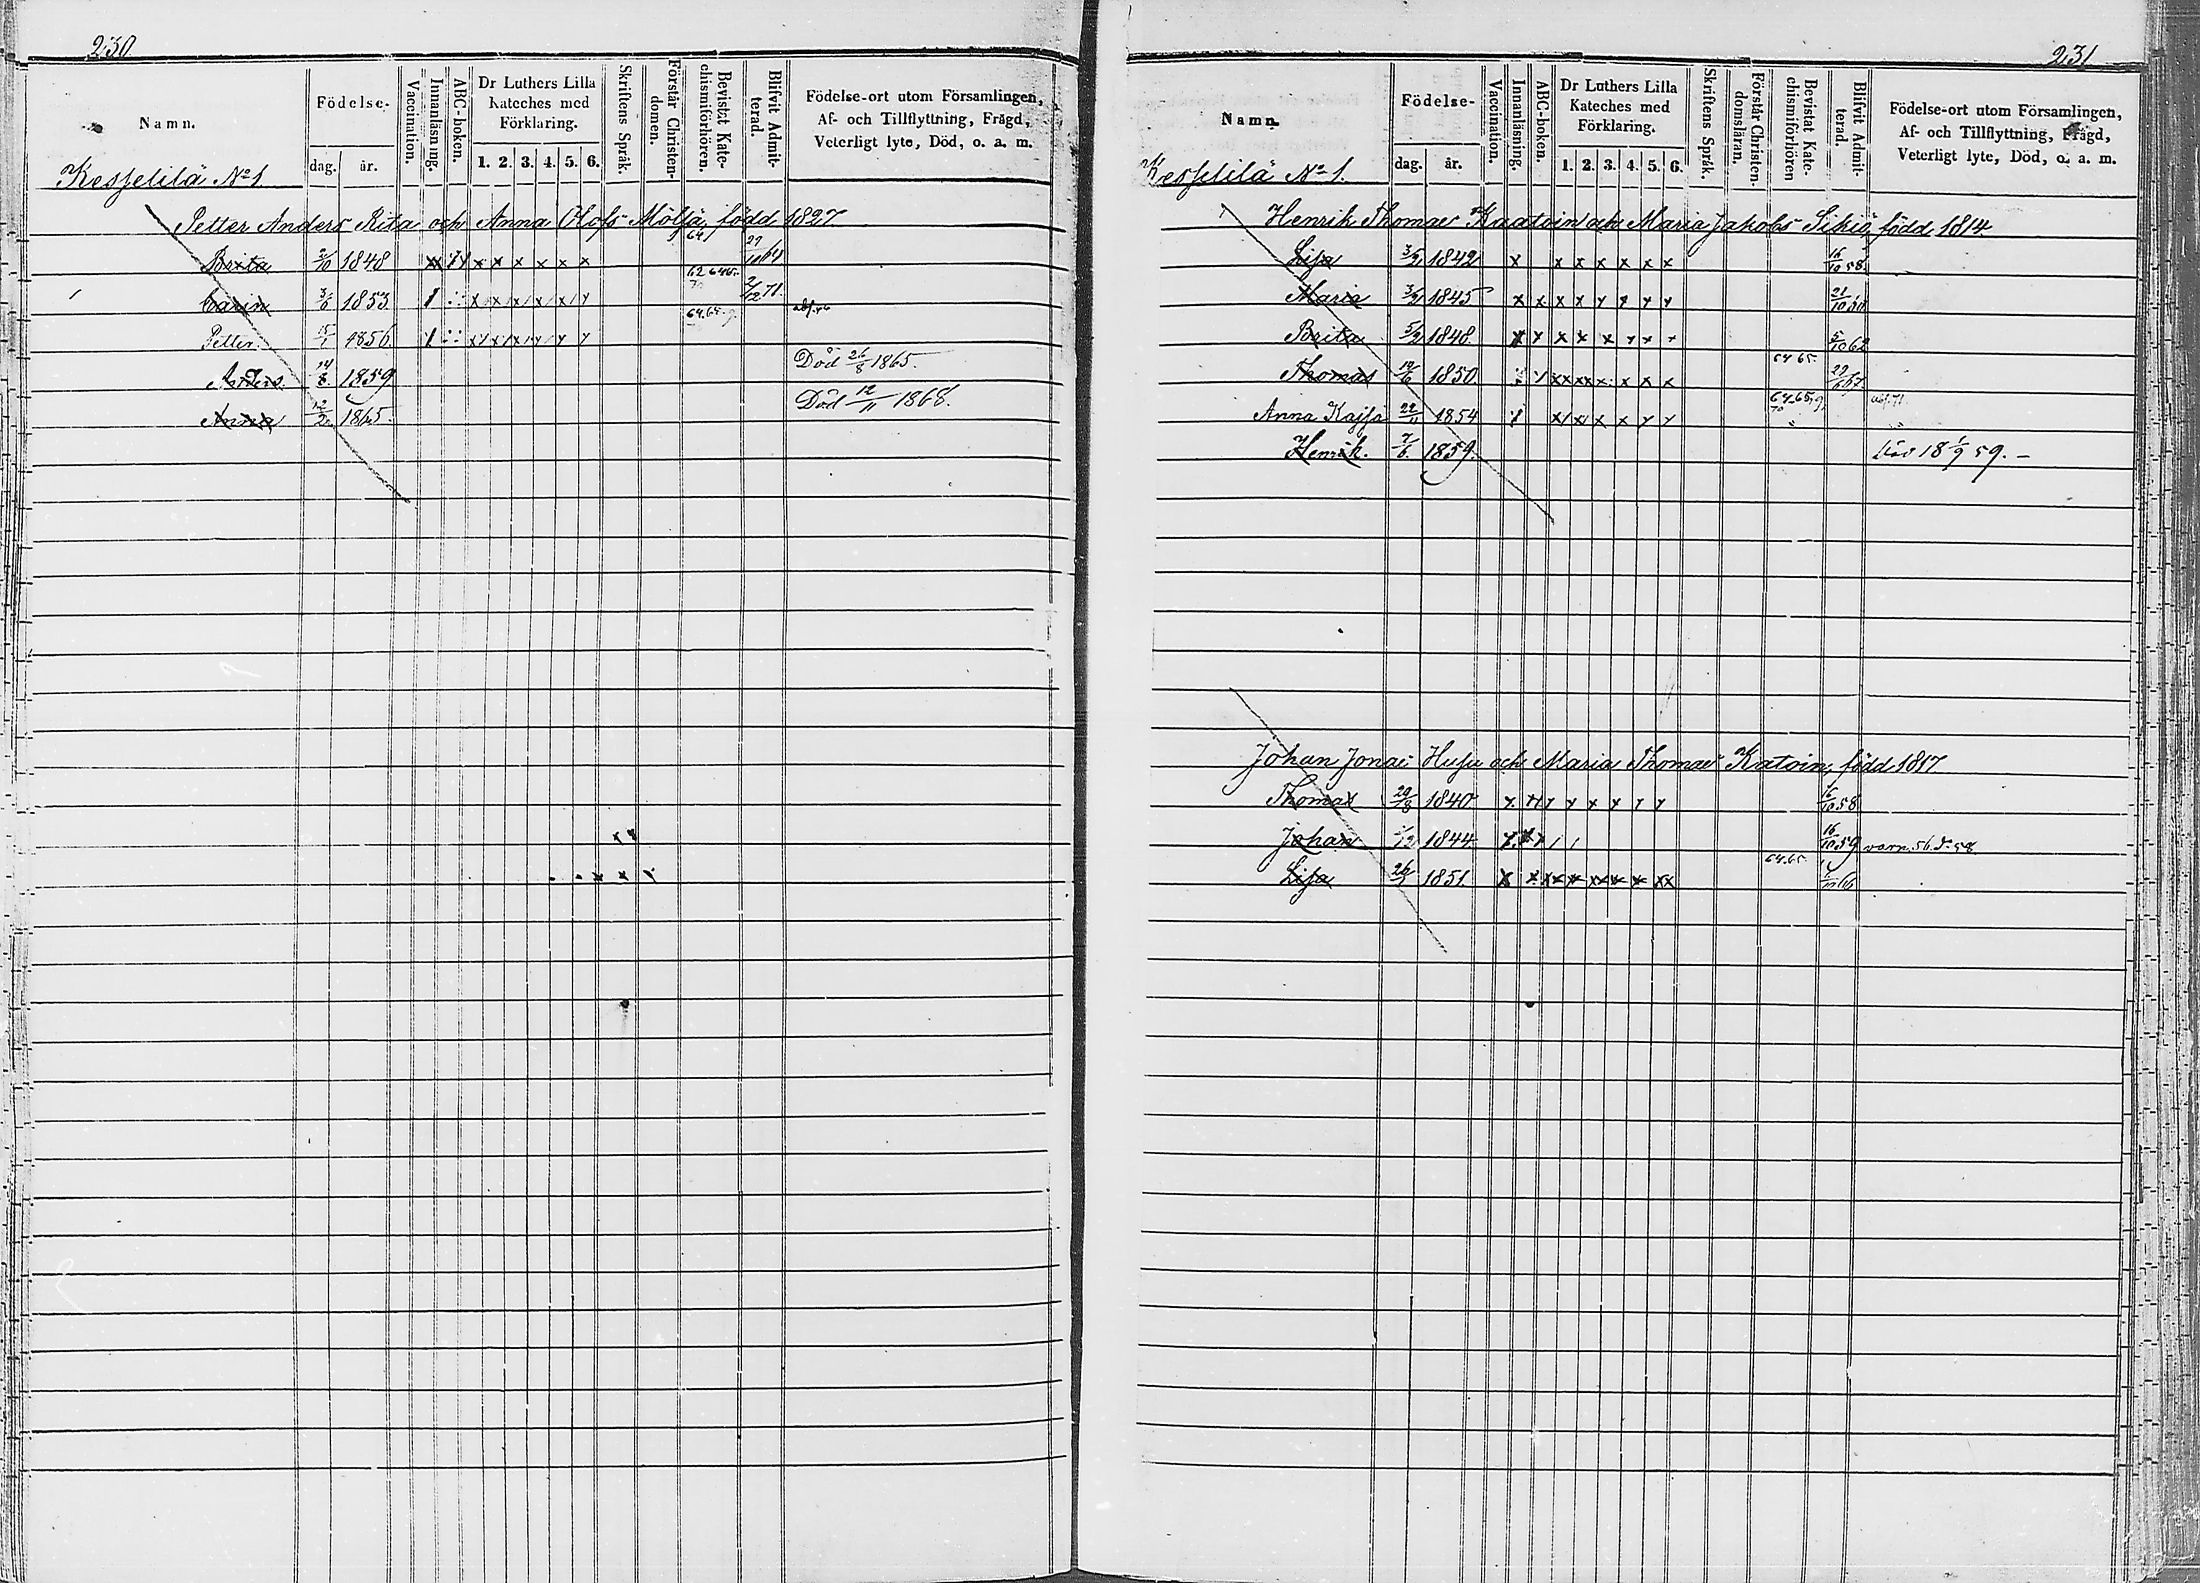 230
Namn.
Födelse-
dag. år.
Vaccination.
Innanläsning.
ABC-boken.
Dr Luthers Lilla
Kateches med
Förklaring.
1. 2. 3. 4. 5. 6.
Skriftens Språk.
Förstår Christen-
domen.
Bevistat Kate-
chismiförhören.
Blifvit Admit-
terad.
Födelse-ort utom Församlingen,
Af- och Tillflyttning, Frägd,
Veterligt lyte, Död, o. a. m.
Kesselilä No 1
Petter Anders Rita och Anna Olofs Möljä, född 1827.
Brita 2/10 1848 x x x x x x 64
Carin 3/6 1853 71.
Petter. 15/1 1856
Anders. 14/8 1859 Död 26/8 1865.
Anna 12/2 1865. Död 12/11 1868.
231
Namn.
Födelse-
dag. år.
Vaccination.
Innanläsning.
ABC-boken.
Dr Luthers Lilla
Kateches med
Förklaring.
1. 2. 3. 4. 5. 6.
Skriftens Språk.
Förstår Christen-
domsläran.
Bevistat Kate-
chismiförhören
Blifvit Admit-
terad.
Födelse-ort utom Församlingen,
Af- och Tillflyttning, Frägd,
Veterligt lyte, Död, o. a. m.
Kesselilä No 1.
Henrik Thomas Kaatoin och Maria Jakobs Sikiö, född 1814
Lisa 3/2 1842 x x x x x x x 16/10 58.
Maria 3/2 1845 x x x x 21/10
Brita 5/2 1848. 5/10 62
64 65.
Thomas 19/6 1850.
64 65
Anna Kajsa 22/11 1854
Henrik. 7/6. 1859. 18 1/9 59. —
Johan Jonas Husu och Maria Thomas Katoin, född 1817.
Thomas 20/8 1840 16/10 58
Johan 1844 16/10 59 varn. 56.
64.65.
Lisa 1851.